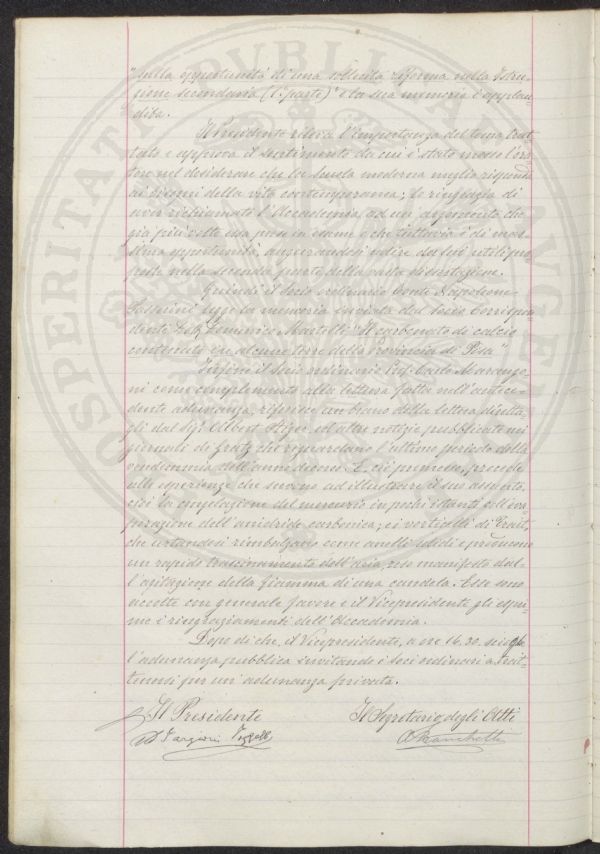 "sulla opportunità di una sollecita riforma nella Istru-
zione secondaria (1ª parte)" e la sua memoria è applau-
dita.
Il Presidente rileva l'importanza del tema trat-
tato e approva il sentimento da cui è stato mosso l'ora-
tore nel desiderare che la Scuola moderna meglio risponda
ai bisogni della vita contemporanea; lo ringrazia di
aver richiamato l'Accademia ad un argomento che
già più volte essa prese in esame e che tuttavia è di
opportunità, augurandosi udire da lui utili pro-
poste nella seconda parte della dissertazione.
Quindi il Socio ordinario Conte Napoleone
Passerini legge la memoria inviata dal Socio Corrispon-
dente Domenico Martelli "Il carbonato di calcio
contenuto in alcune terre della Provincia di Pisa"
Infine il Socio ordinario Prof. Carlo Marango-
ni come complemento alla lettura fatta nell'antece-
dente adunanza, riferisce un brano della lettera diretta-
gli dal Sig. Albert Stiger ed altre notizie pubblicate nei
giornali di Gratz che riguardano l'ultimo periodo della
vendemmia dell'anno decorso. E, ciò premesso, procede
alle esperienze che servono ad illustrare il suo assunto,
cioè la congelazione del mercurio in pochi istanti coll'eva-
porazione dell'anidride carbonica; ei vorticelli di Trait
che urtandosi rimbalzano come anelli solidi e producono
un rapido trascinamento dell'aria, reso manifesto dal-
l'agitazione della fiamma di una candela. Esse sono
accolte con generale favore e il Vicepresidente gli espri-
me i ringraziamenti dell'Accademia.
Dopo di che, il Vicepresidente, a ore 16.30, scioglie
l'adunanza pubblica invitando i Soci ordinari a trat-
tenersi per un'adunanza privata.
Il Presidente
Il Segretario degli Atti
Targioni Tozzetti
PROSPERITATI PUBLICAE AUGENDAE